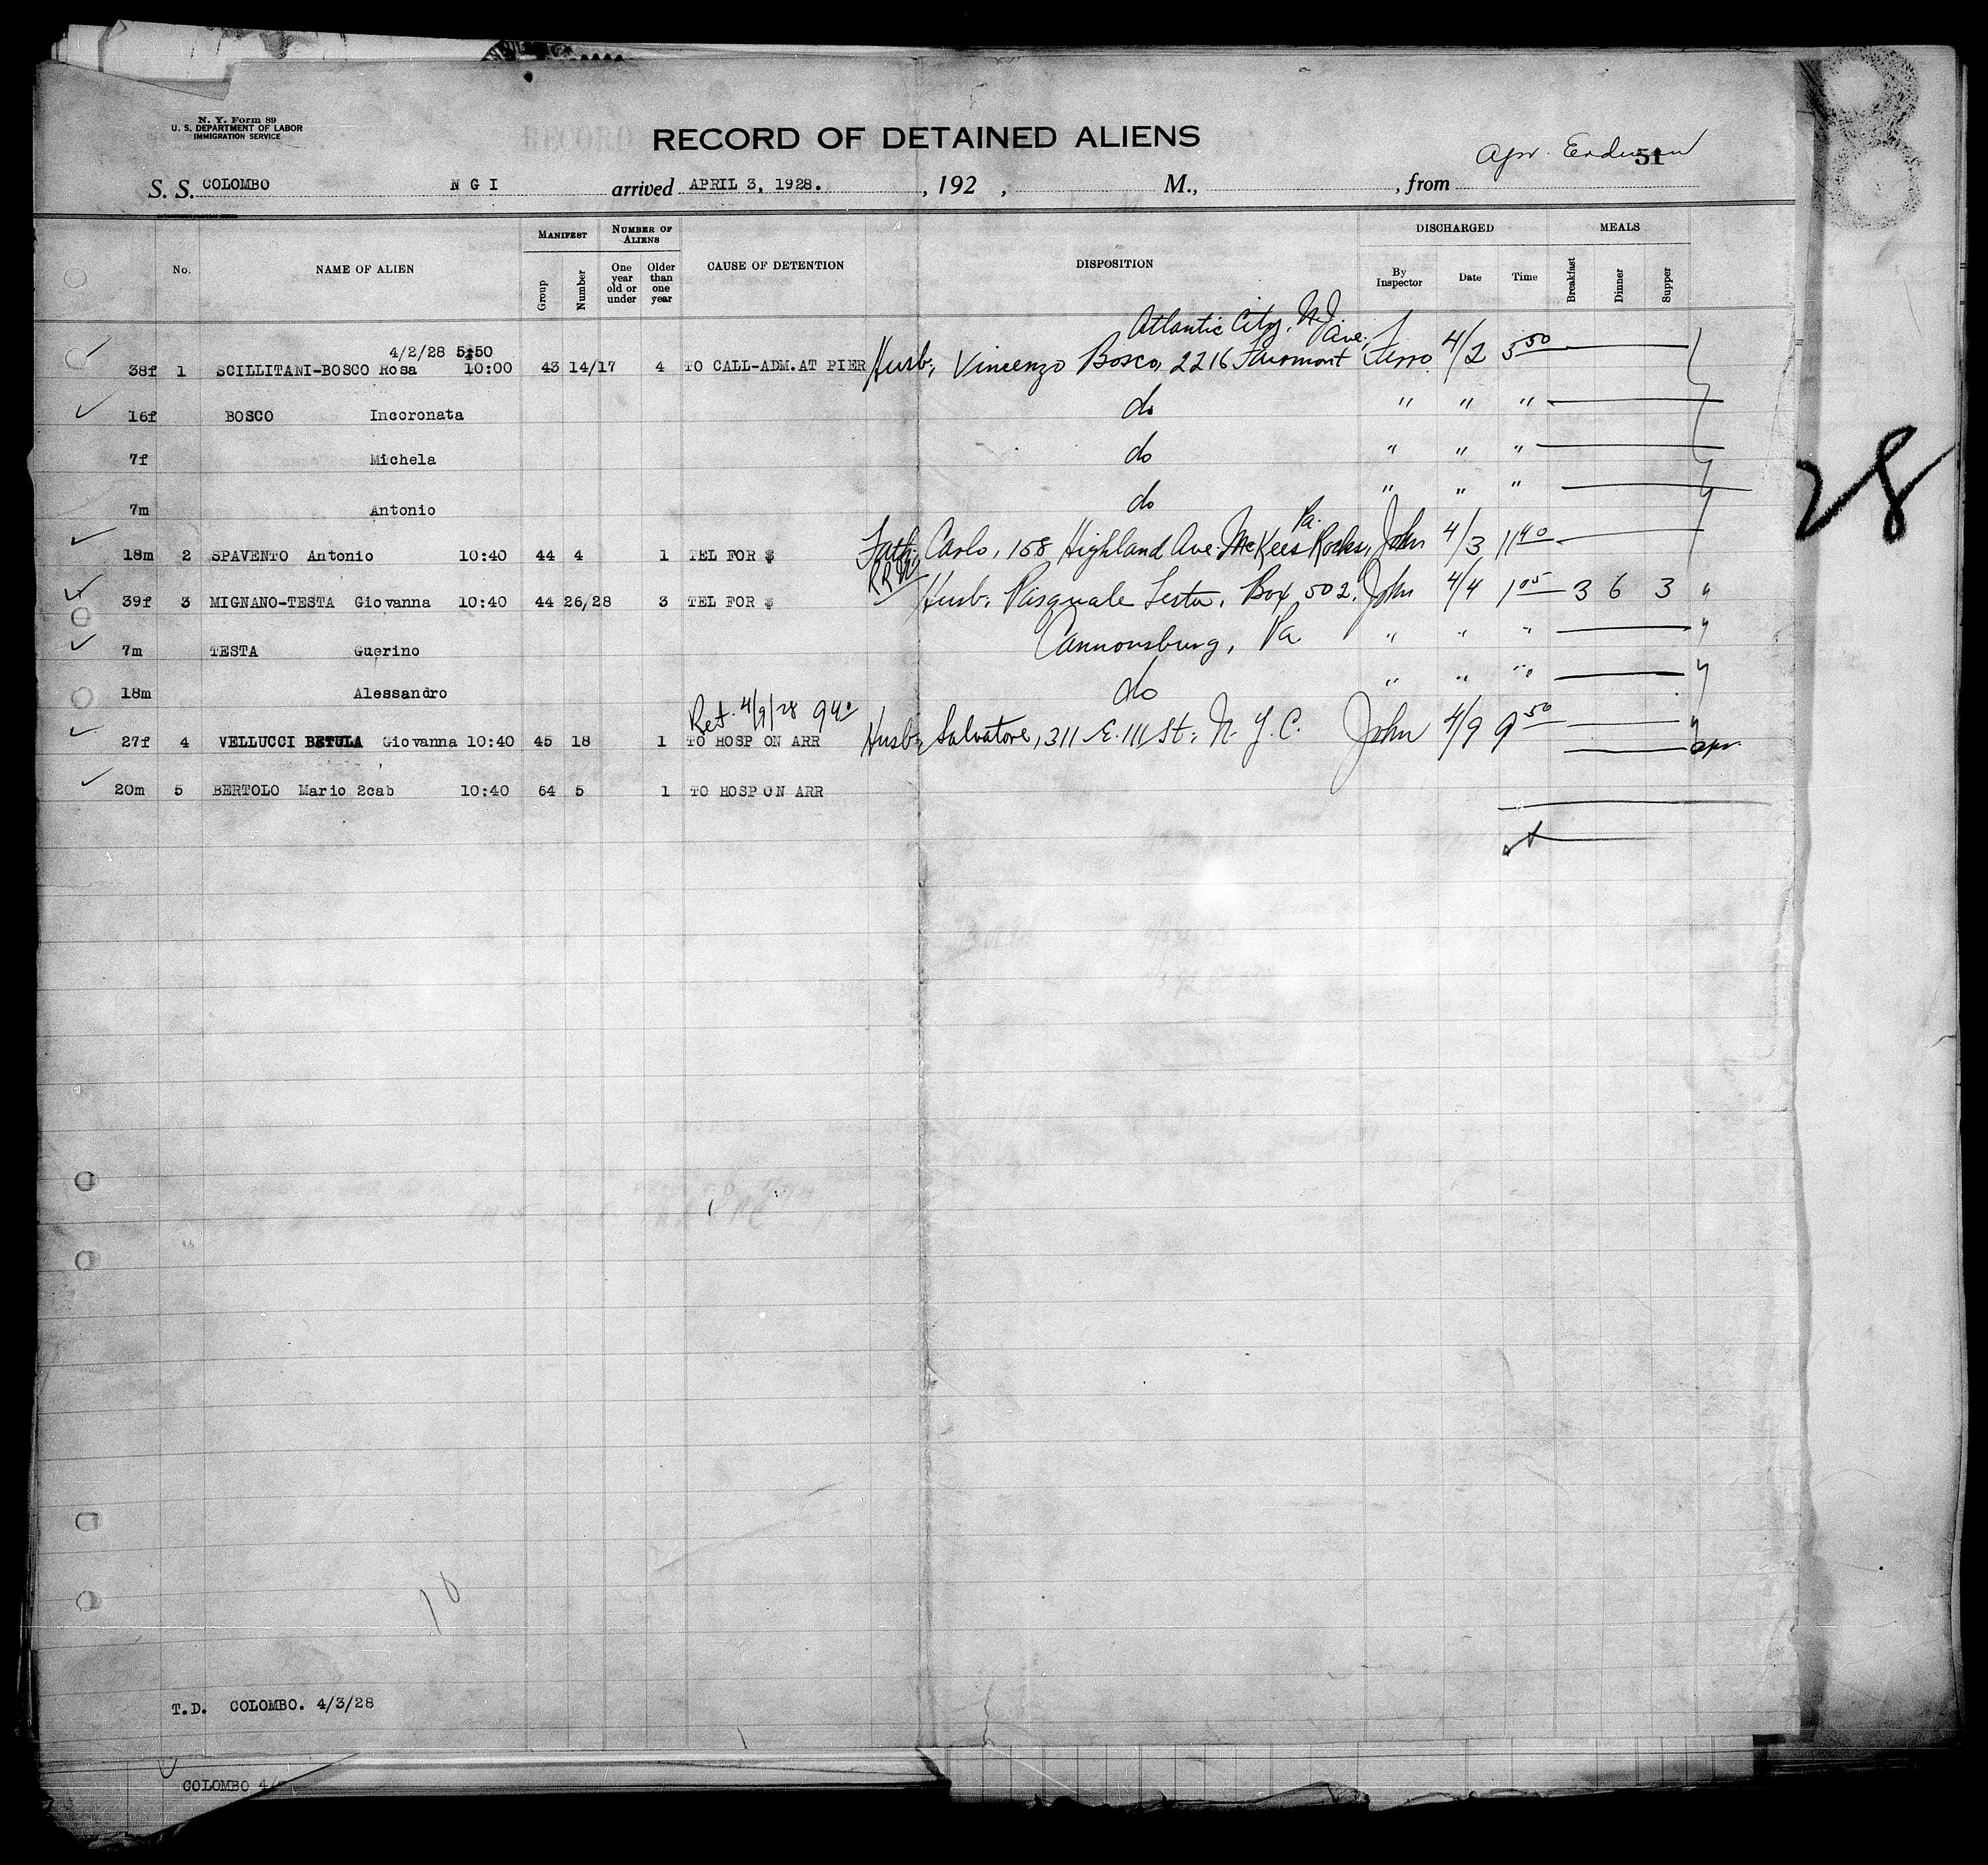 N. Y. Form 89
U. S. DEPARTMENT OF LABOR
IMMIGRATION SERVICE
RECORD OF DETAINED ALIENS
51
S. S. COLOMBO N G I arrived APRIL 3, 1928. , 192 , M., , from
No. NAME OF ALIEN MANIFEST Group Number NUMBER OF ALIENS One year old or under Older than one year CAUSE OF DETENTION DISPOSITION DISCHARGED By Inspector Date Time MEALS Breakfast Dinner Supper
Atlantic City, N.J.
4/2/28 5:50 Ave.
38f 1 SCILLITANI-BOSCO Rosa 10:00 43 14/17 4 TO CALL-ADM.AT PIER Husb, Vincenzo Bosco, 2216 Fairmont 4/2 5 50
16f BOSCO Incoronata do " " "
7f Michela do " " "
7m Antonio do " " "
Pa.
18m 2 SPAVENTO Antonio 10:40 44 4 1 TEL FOR $ Fath, Carlo, 158 Highland Ave. McKees Rocks, John 4/3 11 40
39f 3 MIGNANO-TESTA Giovanna 10:40 44 26/28 3 TEL FOR $ Husb, Pasquale Testa, Box 502, John 4/4 1 05 3 6 3 "
7m TESTA Guerino Cannonsburg, Pa " " " "
18m Alessandro do " " " "
Ret. 4/9/28 9 40
27f 4 VELLUCCI BETULA Giovanna 10:40 45 18 1 TO HOSP ON ARR Husb, Salvatore, 311 E. 111 St, N. Y. C. John 4/9 9 50 "
20m 5 BERTOLO Mario 2cab 10:40 64 5 1 TO HOSP ON ARR
28
10
T.D. COLOMBO. 4/3/28
COLOMBO 4/